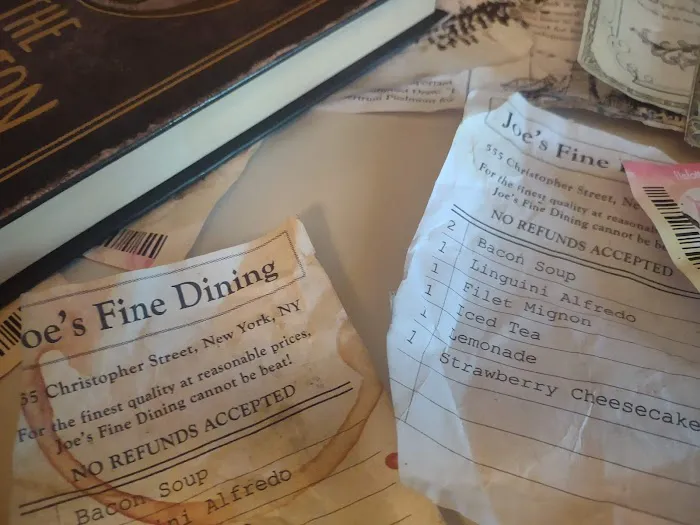 THE
oe's Fine Dining
55 Christopher Street, New York, NY
For the finest quality at reasonable prices,
Joe's Fine Dining cannot be beat!
NO REFUNDS ACCEPTED
Bacon Soup
ini Alfredo
Joe's Fine
555 Christopher Street, New
For the finest quality at reasonabl
Joe's Fine Dining cannot be be
NO REFUNDS ACCEPTED
2 Bacon Soup
1 Linguini Alfredo
1 Filet Mignon
1 Iced Tea
1 Lemonade
1 Strawberry Cheesecake